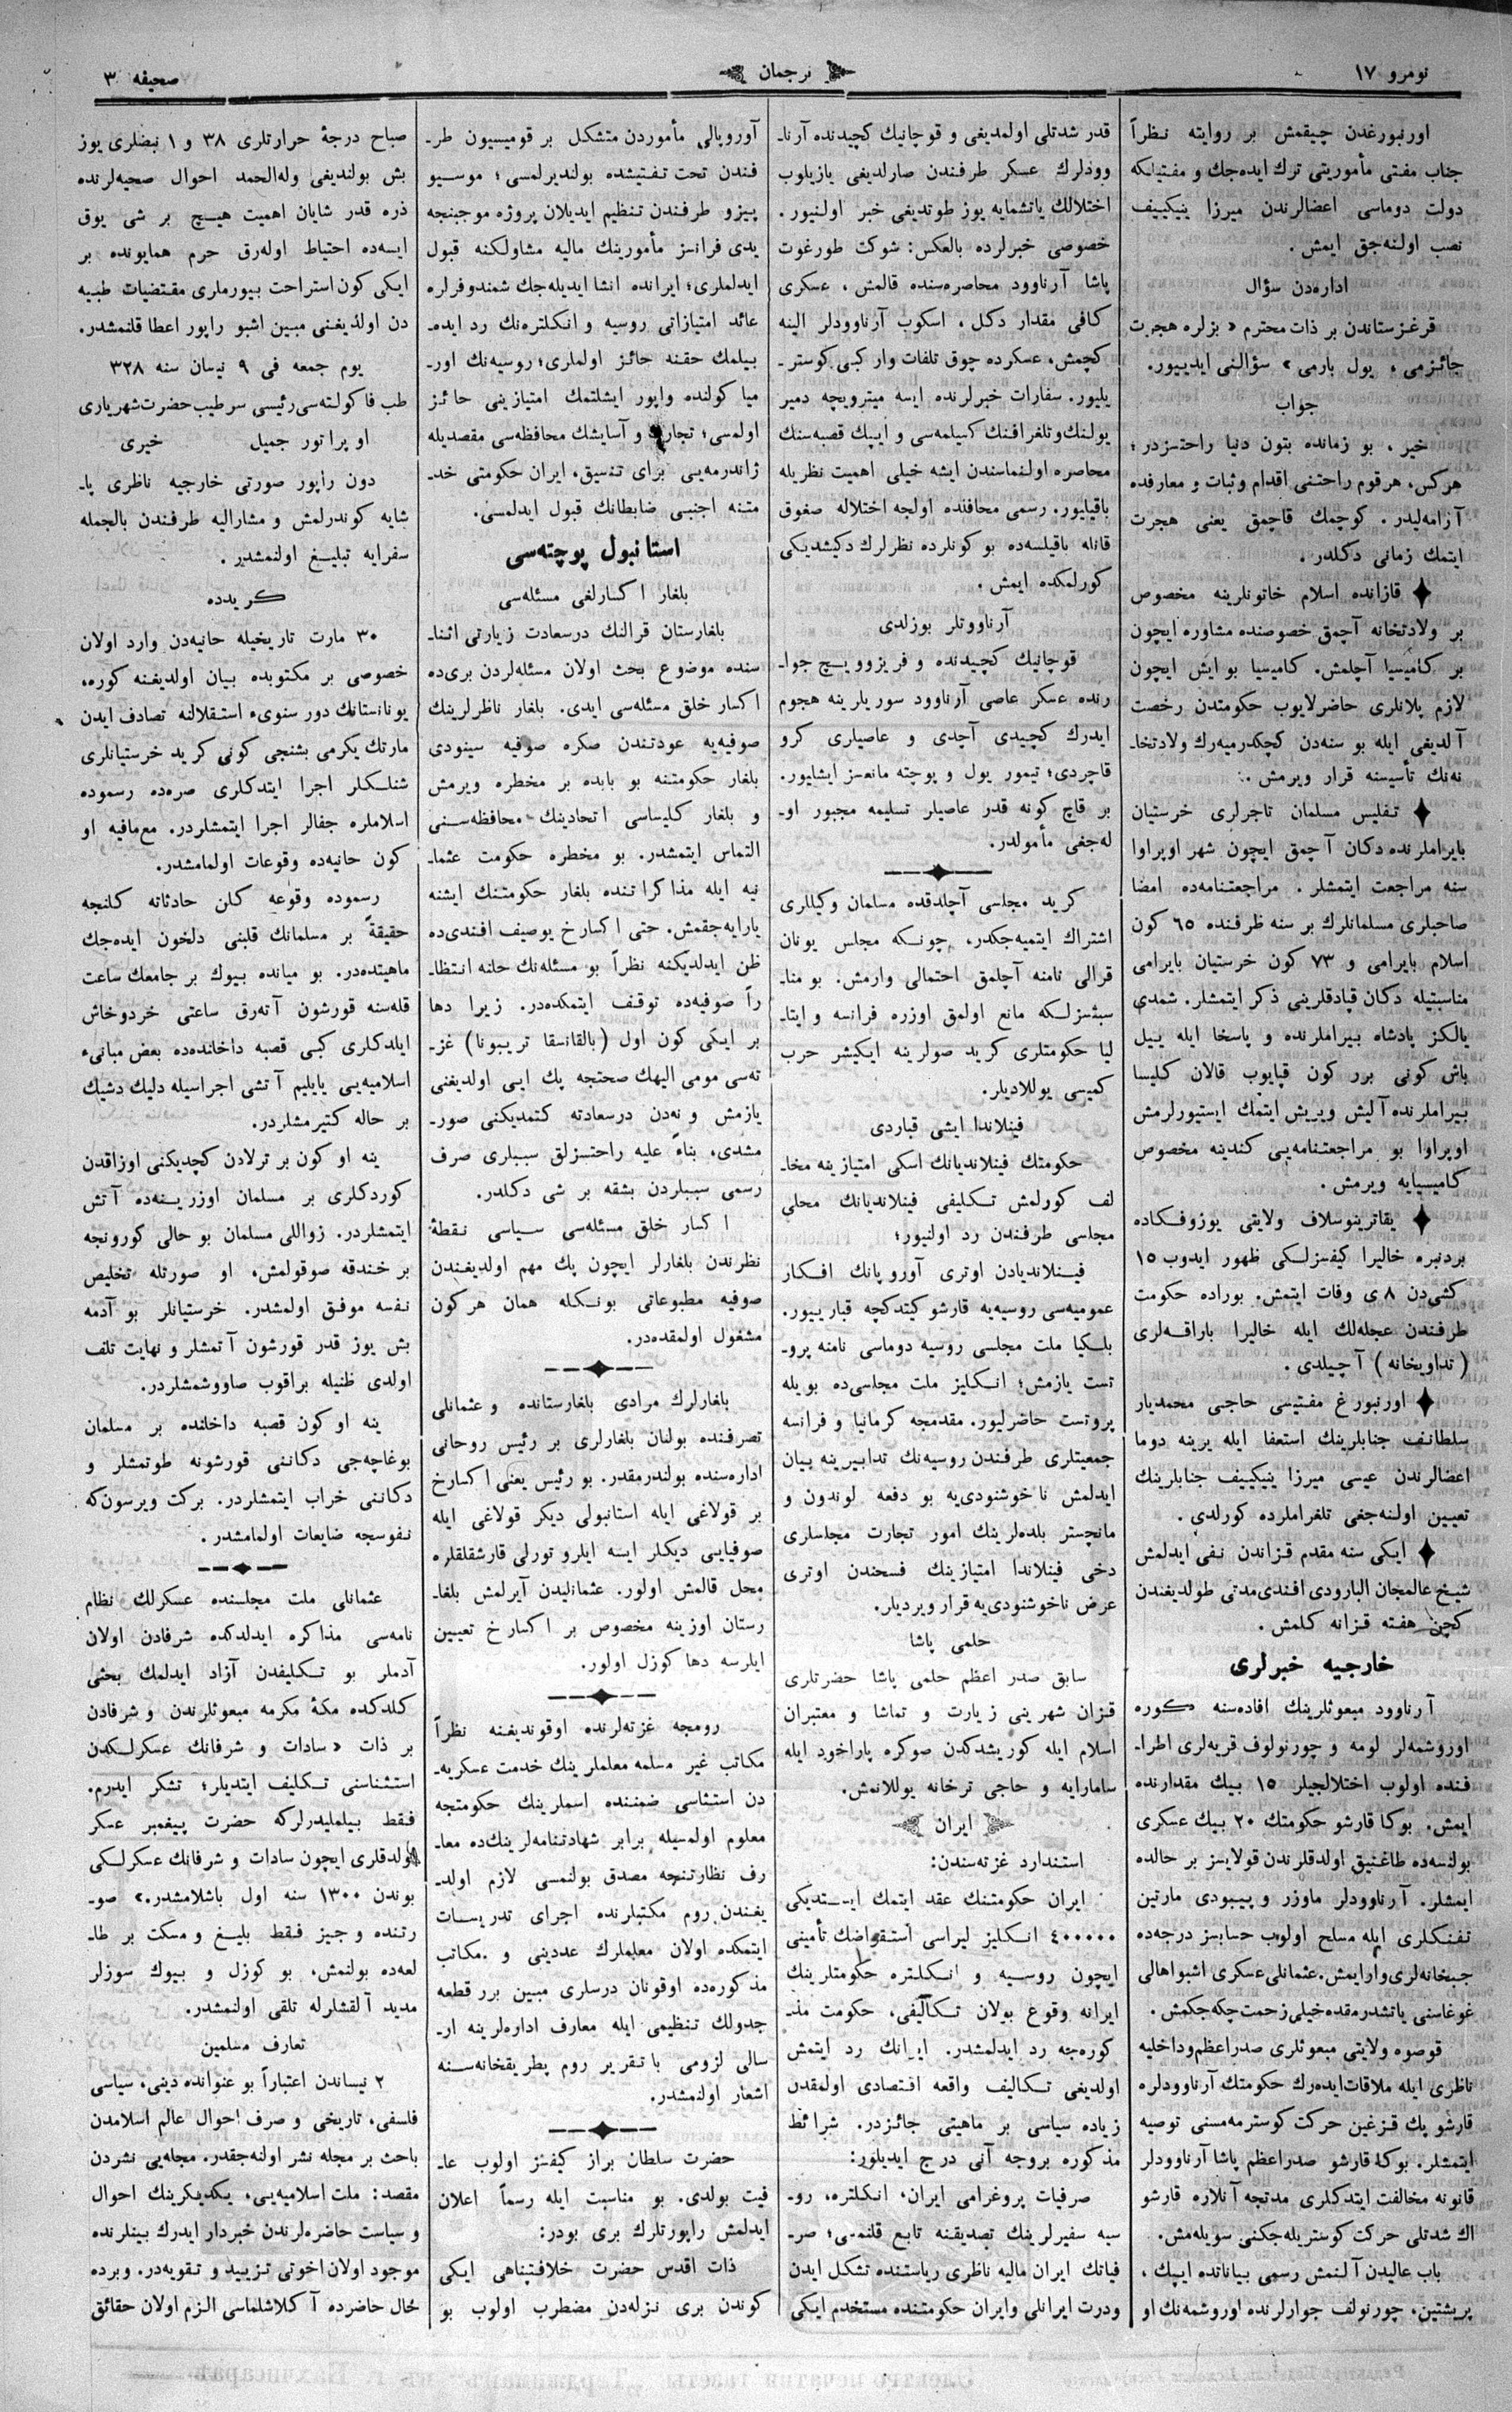 نومرو ١٧
ترجمان
صحيفه ٣
اورنبورغدن چيقمش بر روايته نظراً
جناب مفتى مأموريتى ترك ايده‌جك و مفتيلكه
دولت دوماسى اعضالرندن ميرزا ينيكييف
نصب اولنه‌جق ايمش .
اداره‌دن سؤال
قرغزستاندن بر ذات محترم « بزلره هجرت
جائزمى ، يول بارمى » سؤالنى ايدييور.
جواب
خير ، بو زمانده بتون دنيا راحتسزدر ؛
هركس، هرقوم راحتنى اقدام وثبات و معارفده
آرامه‌ليدر. كوچمك قاچمق يعنى هجرت
ايتمك زمانى دكلدر .
قازانده اسلام خاتونلرينه مخصوص
بر ولادتخانه آچمق خصوصنده مشاوره ايچون
بر كاميسيا آچلمش. كاميسيا بو ايش ايچون
لازم پلانلرى حاضرلايوب حكومتدن رخصت
آلديغى ايله بو سنه‌دن كچكدرميه‌رك ولادتخا-
نه‌نك تأسيسنه قرار ويرمش .
تفليس مسلمان تاجرلرى خرستيان
بايراملرنده دكان آچمق ايچون شهر اوپراوا
سنه مراجعت ايتمشلر . مراجعتنامه‌ده امضا
صاحبلرى مسلمانلرك بر سنه ظرفنده ٦٥ كون
اسلام بايرامى و ٧٣ كون خرستيان بايرامى
مناسبتيله دكان قپادقلرينى ذكر ايتمشلر. شمدى
يالكز پادشاه بيراملرنده و پاسخا ايله ييل
باش كونى برر كون قپايوب قالان كليسا
بيراملرنده آليش ويريش ايتمك ايستيورلرمش
اوپراوا بو مراجعتنامه‌يى كندينه مخصوص
كاميسيايه ويرمش .
يقاترينوسلاف ولايتى يوزوفكاده
بردنبره خاليرا كيفسزلكى ظهور ايدوب ١٥
كشى‌دن ٨ى وفات ايتمش. بوراده حكومت
طرفندن عجله‌لك ايله خاليرا باراقه‌لرى
( تداويخانه ) آچيلدى .
اورنبورغ مفتيسى حاجى محمديار
سلطانف جنابلرينك استعفا ايله يرينه دوما
اعضالرندن عيسى ميرزا ينيكييف جنابلرينك
تعيين اولنه‌جغى تلغراملرده كورلدى .
ايكى سنه مقدم قزاندن نفى ايدلمش
شيخ عالمجان البارودى افندى مدتى طولديغندن
كچن هفته قزانه كلمش .
خارجيه خبرلرى
آرناوود مبعوثلرينك افاده‌سنه كوره
اوروشمه‌لر لومه و چورنولوف قريه‌لرى اطرا-
فنده اولوب اختلالجيلر ١٥ بيك مقدارنده
ايمش. بوكا قارشو حكومتك ٢٠ بيك عسكرى
بولنسه‌ده طاغنيق اولدقلرندن قولايسز بر حالده
ايمشلر. آرناوودلر ماوزر و پيبودى مارتين
تفنكلرى ايله مسلح اولوب حسابسز درجه‌ده
جبخانه‌لرى وارايمش. عثمانلى عسكرى اشبو اهالى
غوغاسنى ياتشدرمقده خيلى زحمت چكه‌جكمش .
قوصوه ولايتى مبعوثلرى صدراعظم وداخليه
ناظرى ايله ملاقات ايده‌رك حكومتك آرناوودلره
قارشو پك قزغين حركت كوسترمه‌مسنى توصيه
ايتمشلر. بوكا قارشو صدراعظم پاشا آرناوودلر
قانونه مخالفت ايتدكلرى مدتجه آنلاره قارشو
اك شدتلى حركت كوستريله‌جكنى سويله‌مش.
باب عاليدن آلنمش رسمى بياناتده ايپك ،
پريشتين، چورنولف جوارلرنده اوروشمه‌نك او
قدر شدتلى اولمديغى و قوچانيك كچيدنده آرنا-
وودلرك عسكر طرفندن صارلديغى يازيلوب
اختلالك ياتشمايه يوز طوتديغى خبر اولنيور.
خصوصى خبرلرده بالعكس: شوكت طورغوت
پاشا آرناوود محاصره‌سنده قالمش ، عسكرى
كافى مقدار دكل ، اسكوب آرناوودلر الينه
كچمش، عسكرده چوق تلفات وار كبى كوستر-
يليور. سفارات خبرلرنده ايسه ميترويچه دمير
يولنك وتلغرافنك كسيلمه‌سى و ايپك قصبه‌سنك
محاصره اولنماسندن ايشه خيلى اهميت نظريله
باقيليور. رسمى محافلده اولجه اختلاله صغوق
قانله باقيلسه‌ده بو كونلرده نظرلرك دكيشديكى
كورلمكده ايمش .
آرناووتلر بوزلدى
قوچانيك كچيدنده و فريزوويچ جوا-
رنده عسكر عاصى آرناوود سوريلرينه هجوم
ايدرك كچيدى آچدى و عاصيلرى كرو
قاچردى؛ تيمور يول و پوچته مانعسز ايشليور.
بر قاچ كونه قدر عاصيلر تسليمه مجبور او-
له‌جغى مأمولدر.
كريد مجلسى آچلدقده مسلمان وكيللرى
اشتراك ايتميه‌جكدر، چونكه مجلس يونان
قرالى نامنه آچلمق احتمالى وارمش. بو منا-
سبتسزلكه مانع اولمق اوزره فرانسه و ايتا-
ليا حكومتلرى كريد صولرينه ايكيشر حرب
كميسى يوللاديلر.
فينلاندا ايشى قباردى
حكومتك فينلانديانك اسكى امتيازينه مخا-
لف كورلمش تكليفى فينلانديانك محلى
مجلسى طرفندن رد اولنيور؛
فينلانديادن اوترى آوروپانك افكار
عموميه‌سى روسيه‌يه قارشو كيتدكچه قباريیور.
بلكيا ملت مجلسى روسيه دوماسى نامنه پرو-
تست يازمش؛ انكليز ملت مجلسى‌ده بويله
پروتست حاضرليور. مقدمجه كرمانيا و فرانسه
جمعيتلرى طرفندن روسيه‌نك تدابيرينه بيان
ايدلمش ناخوشنودى‌يه بو دفعه لوندون و
مانچستر بلده‌لرينك امور تجارت مجلسلرى
دخى فينلاندا امتيازينك فسحندن اوترى
عرض ناخوشنودى‌يه قرار ويرديلر.
حلمى پاشا
سابق صدر اعظم حلمى پاشا حضرتلرى
قزان شهرينى زيارت و تماشا و معتبران
اسلام ايله كوريشدكدن صوكره پاراخود ايله
سامارايه و حاجى ترخانه يوللانمش.
ايران
استندارد غزته‌سندن:
ايران حكومتنك عقد ايتمك ايستديكى
٤٠٠٠٠٠ انكليز ليراسى استقراضك تأمينى
ايچون روسيه و انكلتره حكومتلرينك
ايرانه وقوع بولان تكاليفى، حكومت مذ-
كوره‌جه رد ايدلمشدر. ايرانك رد ايتمش
اولديغى تكاليف واقعه اقتصادى اولمقدن
زياده سياسى بر ماهيتى جائزدر. شرائط
مذكوره بروجه آتى درج ايديلور:
صرفيات پروغرامى ايران، انكلتره، رو-
سيه سفيرلرينك تصديقنه تابع قلنمسى؛ صر-
فياتك ايران ماليه ناظرى رياستنده تشكل ايدن
ودرت ايرانلى وايران حكومتنده مستخدم ايكى
آوروپالى مأموردن متشكل بر قوميسيون طر-
فندن تحت تفتيشده بولنديرلمسى؛ موسيو
پيزو طرفندن تنظيم ايديلان پروژه موجبنجه
يدى فرانسز مأمورينك ماليه مشاولكنه قبول
ايدلملرى؛ ايرانده انشا ايديله‌جك شمندوفرلره
عائد امتيازاتى روسيه و انكلتره‌نك رد ايده-
بيلمك حقنه حائز اولملرى؛ روسيه‌نك اور-
ميا كولنده واپور ايشلتمك امتيازينى حائز
اولمسى؛ تجارت و آسايشك محافظه‌سى مقصديله
ژاندرمه‌يى براى تنسيق، ايران حكومتى خد-
متنه اجنبى ضابطانك قبول ايدلمسى.
استانبول پوچته‌سى
بلغار اكسارلغى مسئله‌سى
بلغارستان قرالنك درسعادت زيارتى اثنا-
سنده موضوع بحث اولان مسئله‌لردن برى‌ده
اكسار خلق مسئله‌سى ايدى. بلغار ناظرلرينك
صوفيه‌يه عودتندن صكره صوفيه سينودى
بلغار حكومتنه بو بابده بر مخطره ويرمش
و بلغار كليساسى اتحادينك محافظه‌سنى
التماس ايتمشدر. بو مخطره حكومت عثما-
نيه ايله مذاكراتنده بلغار حكومتنك ايشنه
يارايه‌جقمش. حتى اكسارخ يوصيف افندى‌ده
ظن ايدلديكنه نظراً بو مسئله‌نك حلنه انتظا-
راً صوفيه‌ده توقف ايتمكده‌در. زيرا دها
بر ايكى كون اول (بالقانسقا تريبونا) غز-
ته‌سى مومى اليهك صحتجه پك ايى اولديغنى
يازمش و نه‌دن درسعادته كتمديكنى صور-
مشدى، بناءً عليه راحتسزلق سببلرى صرف
رسمى سببلردن بشقه بر شى دكلدر.
اكسار خلق مسئله‌سى سياسى نقطهٔ
نظرندن بلغارلر ايچون پك مهم اولديغندن
صوفيه مطبوعاتى بونكله همان هركون
مشغول اولمقده‌در.
بلغارلرك مرادى بلغارستانده و عثمانلى
تصرفنده بولنان بلغارلرى بر رئيس روحانى
اداره‌سنده بولندرمقدر. بو رئيس يعنى اكسارخ
بر قولاغى ايله استانبولى ديكر قولاغى ايله
صوفيايى ديكلر ايسه ايلرو تورلى قارشقلقلره
محل قالمش اولور. عثمانليدن آيرلمش بلغا-
رستان اوزينه مخصوص بر اكسارخ تعيين
ايلرسه دها كوزل اولور.
رومجه غزته‌لرنده اوقونديغنه نظراً
مكاتب غير مسلمه معلملرينك خدمت عسكريه-
دن استثناسى ضمننده اسملرينك حكومتجه
معلوم اولمسيله برابر شهادتنامه‌لرينك‌ده معا-
رف نظارتنجه مصدق بولنمسى لازم اولد-
يغندن روم مكتبلرنده اجراى تدريسات
ايتمكده اولان معلملرك عددينى و مكاتب
مذكوره‌ده اوقونان درسلرى مبين برر قطعه
جدولك تنظيمى ايله معارف اداره‌لرينه ار-
سالى لزومى باتقرير روم پطريقخانه‌سنه
اشعار اولنمشدر.
حضرت سلطان براز كيفسز اولوب عا-
فيت بولدى. بو مناسبت ايله رسماً اعلان
ايدلمش راپورتلرك برى بودر:
ذات اقدس حضرت خلافتپناهى ايكى
كوندن برى نزله‌دن مضطرب اولوب بو
صباح درجهٔ حرارتلرى ٣٨ و ١ نبضلرى يوز
بش بولنديغى وله‌الحمد احوال صحيه‌لرنده
ذره قدر شايان اهميت هيچ بر شى يوق
ايسه‌ده احتياط اوله‌رق حرم همايونده بر
ايكى كون استراحت بيورملرى مقتضيات طبيه
دن اولديغنى مبين اشبو راپور اعطا قلنمشدر.
يوم جمعه فى ٩ نيسان سنه ٣٢٨
طب فاكولته‌سى رئيسى سرطبيب حضرت شهريارى
اوپراتور جميل خيرى
دون راپور صورتى خارجيه ناظرى پا-
شايه كوندرلمش و مشاراليه طرفندن بالجمله
سفرايه تبليغ اولنمشدر .
كريدده
٣٠ مارت تاريخيله حانيه‌دن وارد اولان
خصوصى بر مكتوبده بيان اولديغنه كوره،
يونانستانك دور سنوىء استقلالنه تصادف ايدن
مارتك يكرمى بشنجى كونى كريد خرستيانلرى
شنلكلر اجرا ايتدكلرى صره‌ده رسموده
اسلاملره جفالر اجرا ايتمشلردر. مع‌مافيه او
كون حانيه‌ده وقوعات اولمامشدر.
رسموده وقوعه كلن حادثاته كلنجه
حقيقةً بر مسلمانك قلبنى دلخون ايده‌جك
ماهيتده‌در. بو ميانده بيوك بر جامعك ساعت
قله‌سنه قورشون آته‌رق ساعتى خردوخاش
ايلدكلرى كبى قصبه داخلنده‌ده بعض مبانىء
اسلاميه‌يى يايليم آتشى اجراسيله دليك دشيك
بر حاله كتيرمشلردر.
ينه او كون بر ترلادن كچديكنى اوزاقدن
كوردكلرى بر مسلمان اوزرينه‌ده آتش
ايتمشلردر. زواللى مسلمان بو حالى كورونجه
بر خندقه صوقولمش، او صورتله تخليص
نفسه موفق اولمشدر. خرستيانلر بو آدمه
بش يوز قدر قورشون آتمشلر و نهايت تلف
اولدى ظنيله براقوب صاووشمشلردر.
ينه او كون قصبه داخلنده بر مسلمان
بوغاچه‌جى دكاننى قورشونه طوتمشلر و
دكاننى خراب ايتمشلردر. بركت ويرسون‌كه
نفوسجه ضايعات اولمامشدر.
عثمانلى ملت مجلسنده عسكرلك نظام
نامه‌سى مذاكره ايدلدكده شرفادن اولان
آدملر بو تكليفدن آزاد ايدلمك بحثى
كلدكده مكهٔ مكرمه مبعوثلرندن و شرفادن
بر ذات « سادات و شرفانك عسكرلكدن
استثناسنى تكليف ايتديلر؛ تشكر ايدرم.
فقط بيلمليدرلركه حضرت پيغمبر عسكر
اولدقلرى ايچون سادات و شرفانك عسكرلكى
بوندن ١٣٠٠ سنه اول باشلامشدر.» صو-
رتنده وجيز فقط بليغ و مسكت بر طا-
لعه‌ده بولنمش، بو كوزل و بيوك سوزلر
مديد آلقشلرله تلقى اولنمشدر.
تعارف مسلمين
٢ نيساندن اعتباراً بو عنوانده دينى، سياسى
فلسفى، تاريخى و صرف احوال عالم اسلامدن
باحث بر مجله نشر اولنه‌جقدر. مجله‌يى نشردن
مقصد: ملت اسلاميه‌يى، يكديكرينك احوال
و سياست حاضره‌لرندن خبردار ايدرك بينلرنده
موجود اولان اخوتى تزييد و تقويه‌در. وبرده
حال حاضرده آكلاشلماسى الزم اولان حقائق